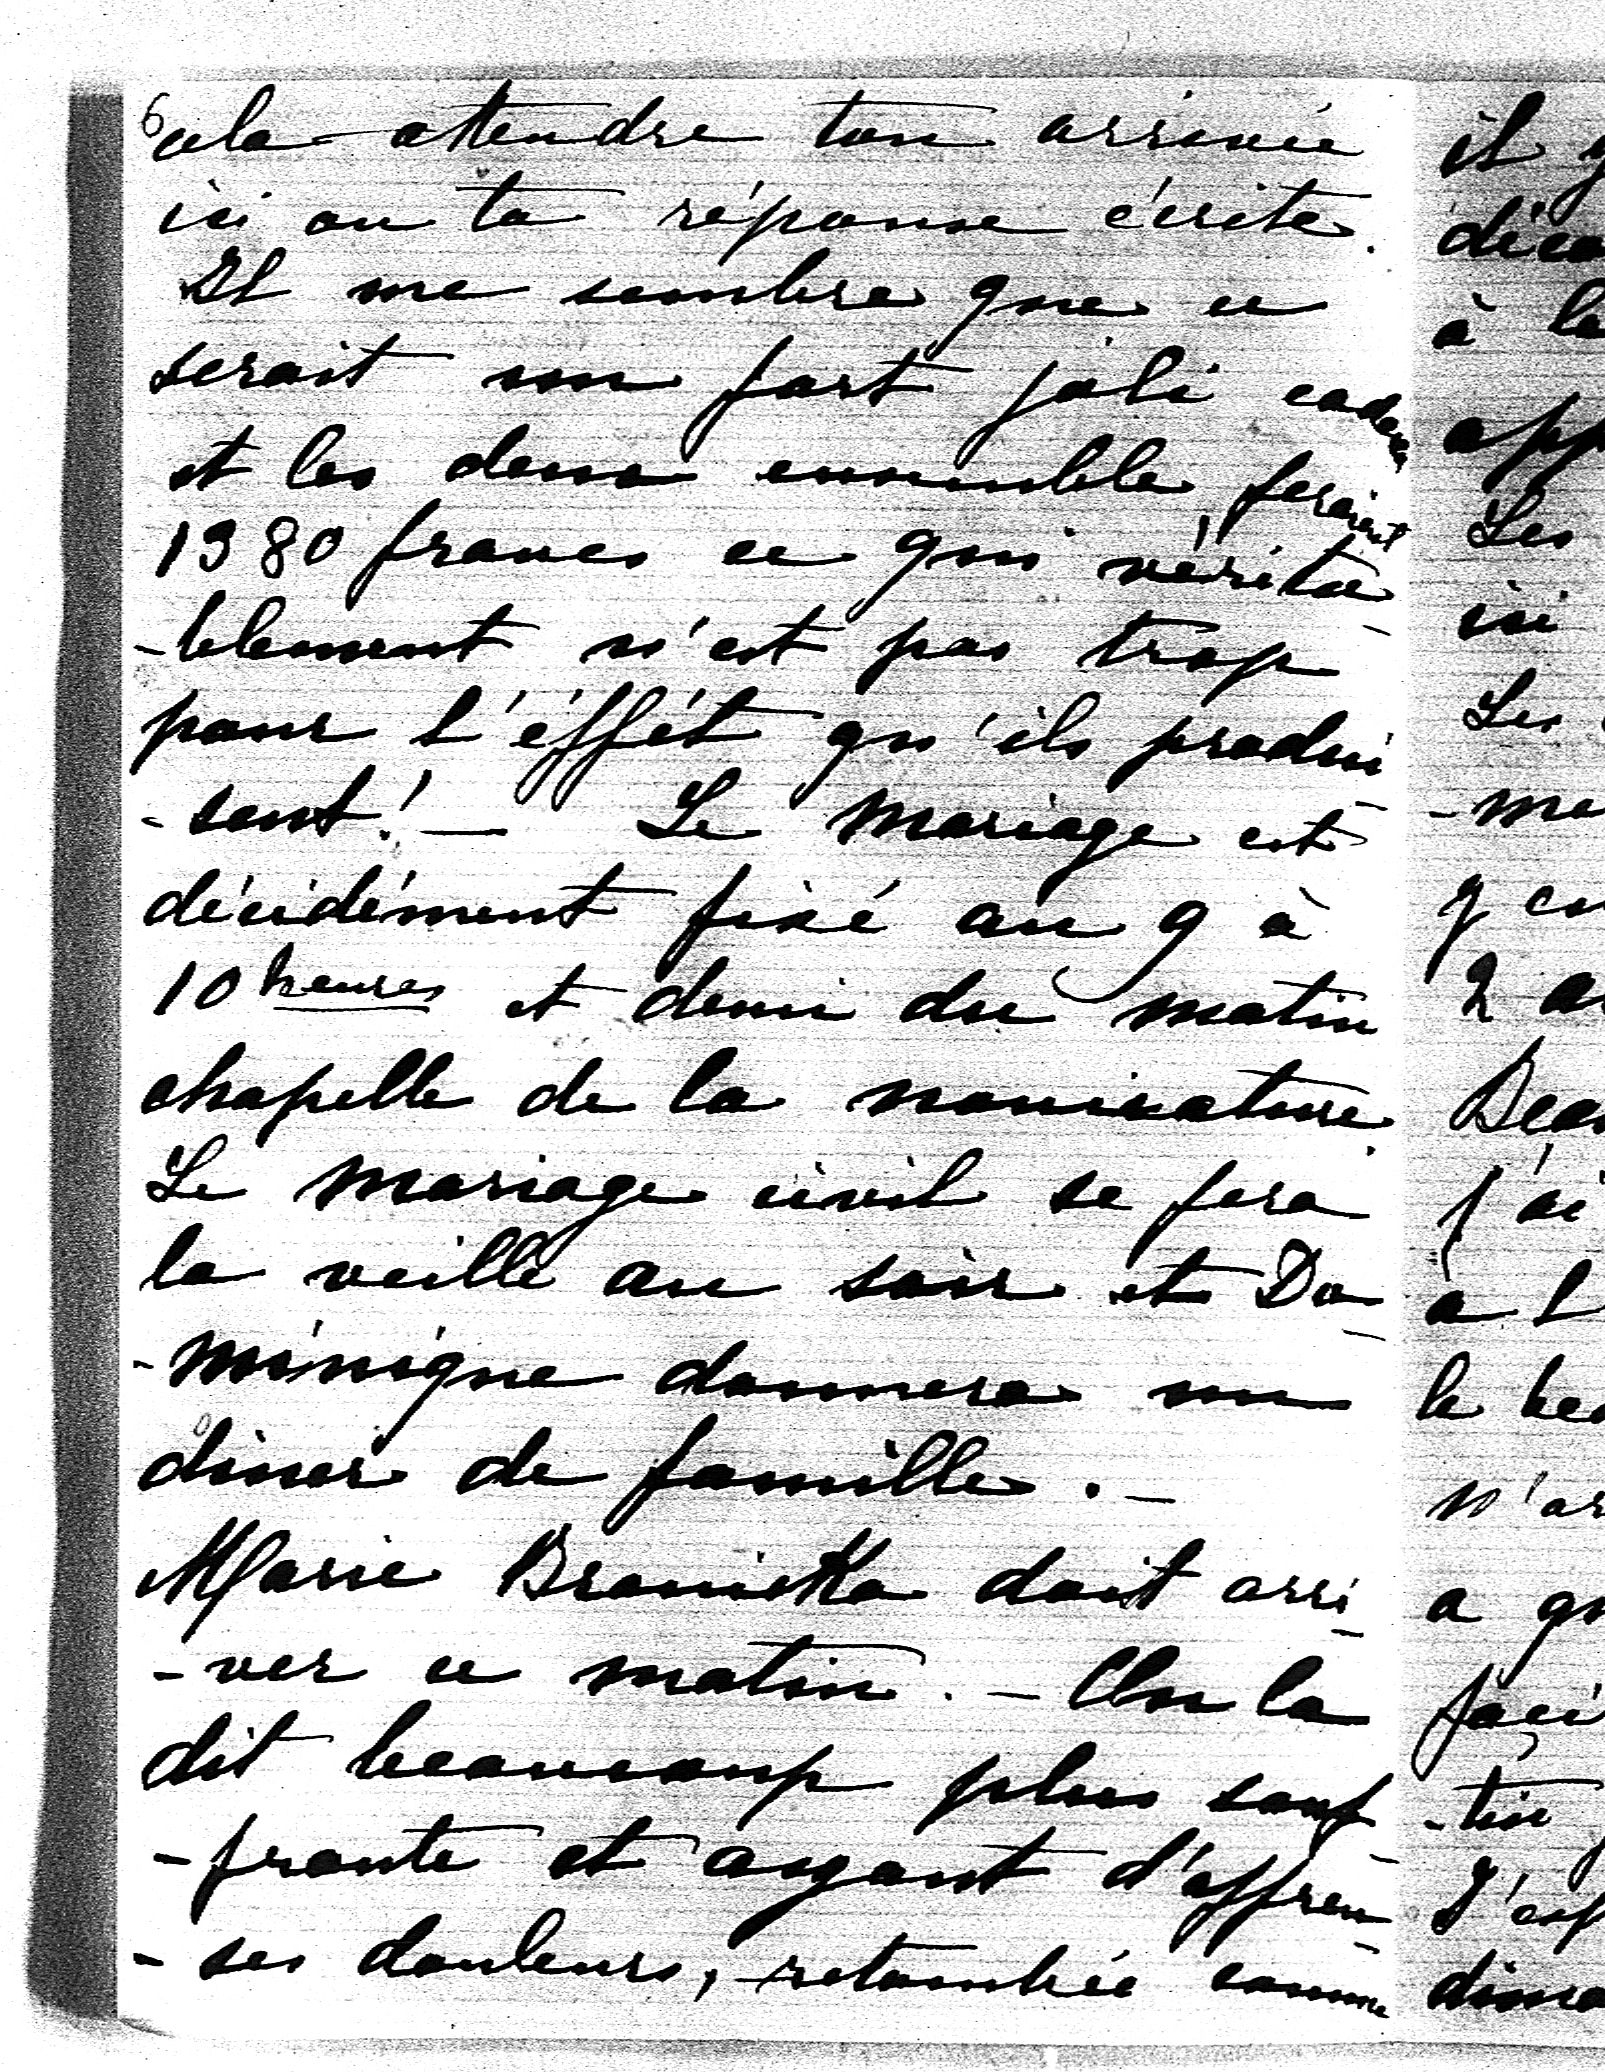 6
cela attendre ton arrivée
ici ou ta réponse écrite.
Il me semble que ce
serait un fort joli cadeau
et les deux ensemble feraient
1380 francs ce qui vérita-
-blement n'est pas trop
pour l'éffét qu'ils produi-
-sent! — Le mariage est
décidément fixé au 9 à
10 heures et demi du matin
chapelle de la nonciature.
Le mariage civil se fera
la veille au soir et Do-
-minique donnera un
diner de famille. —
Marie Branicka doit arri-
-ver ce matin. — On la
dit beaucoup plus souf-
-frante et ayant d'affreu-
-ses douleurs, retombée comme
il y
à la
Les
ici
Les
-me
2
j'ai
à l
le
n'ar
a
-tin
J'esp